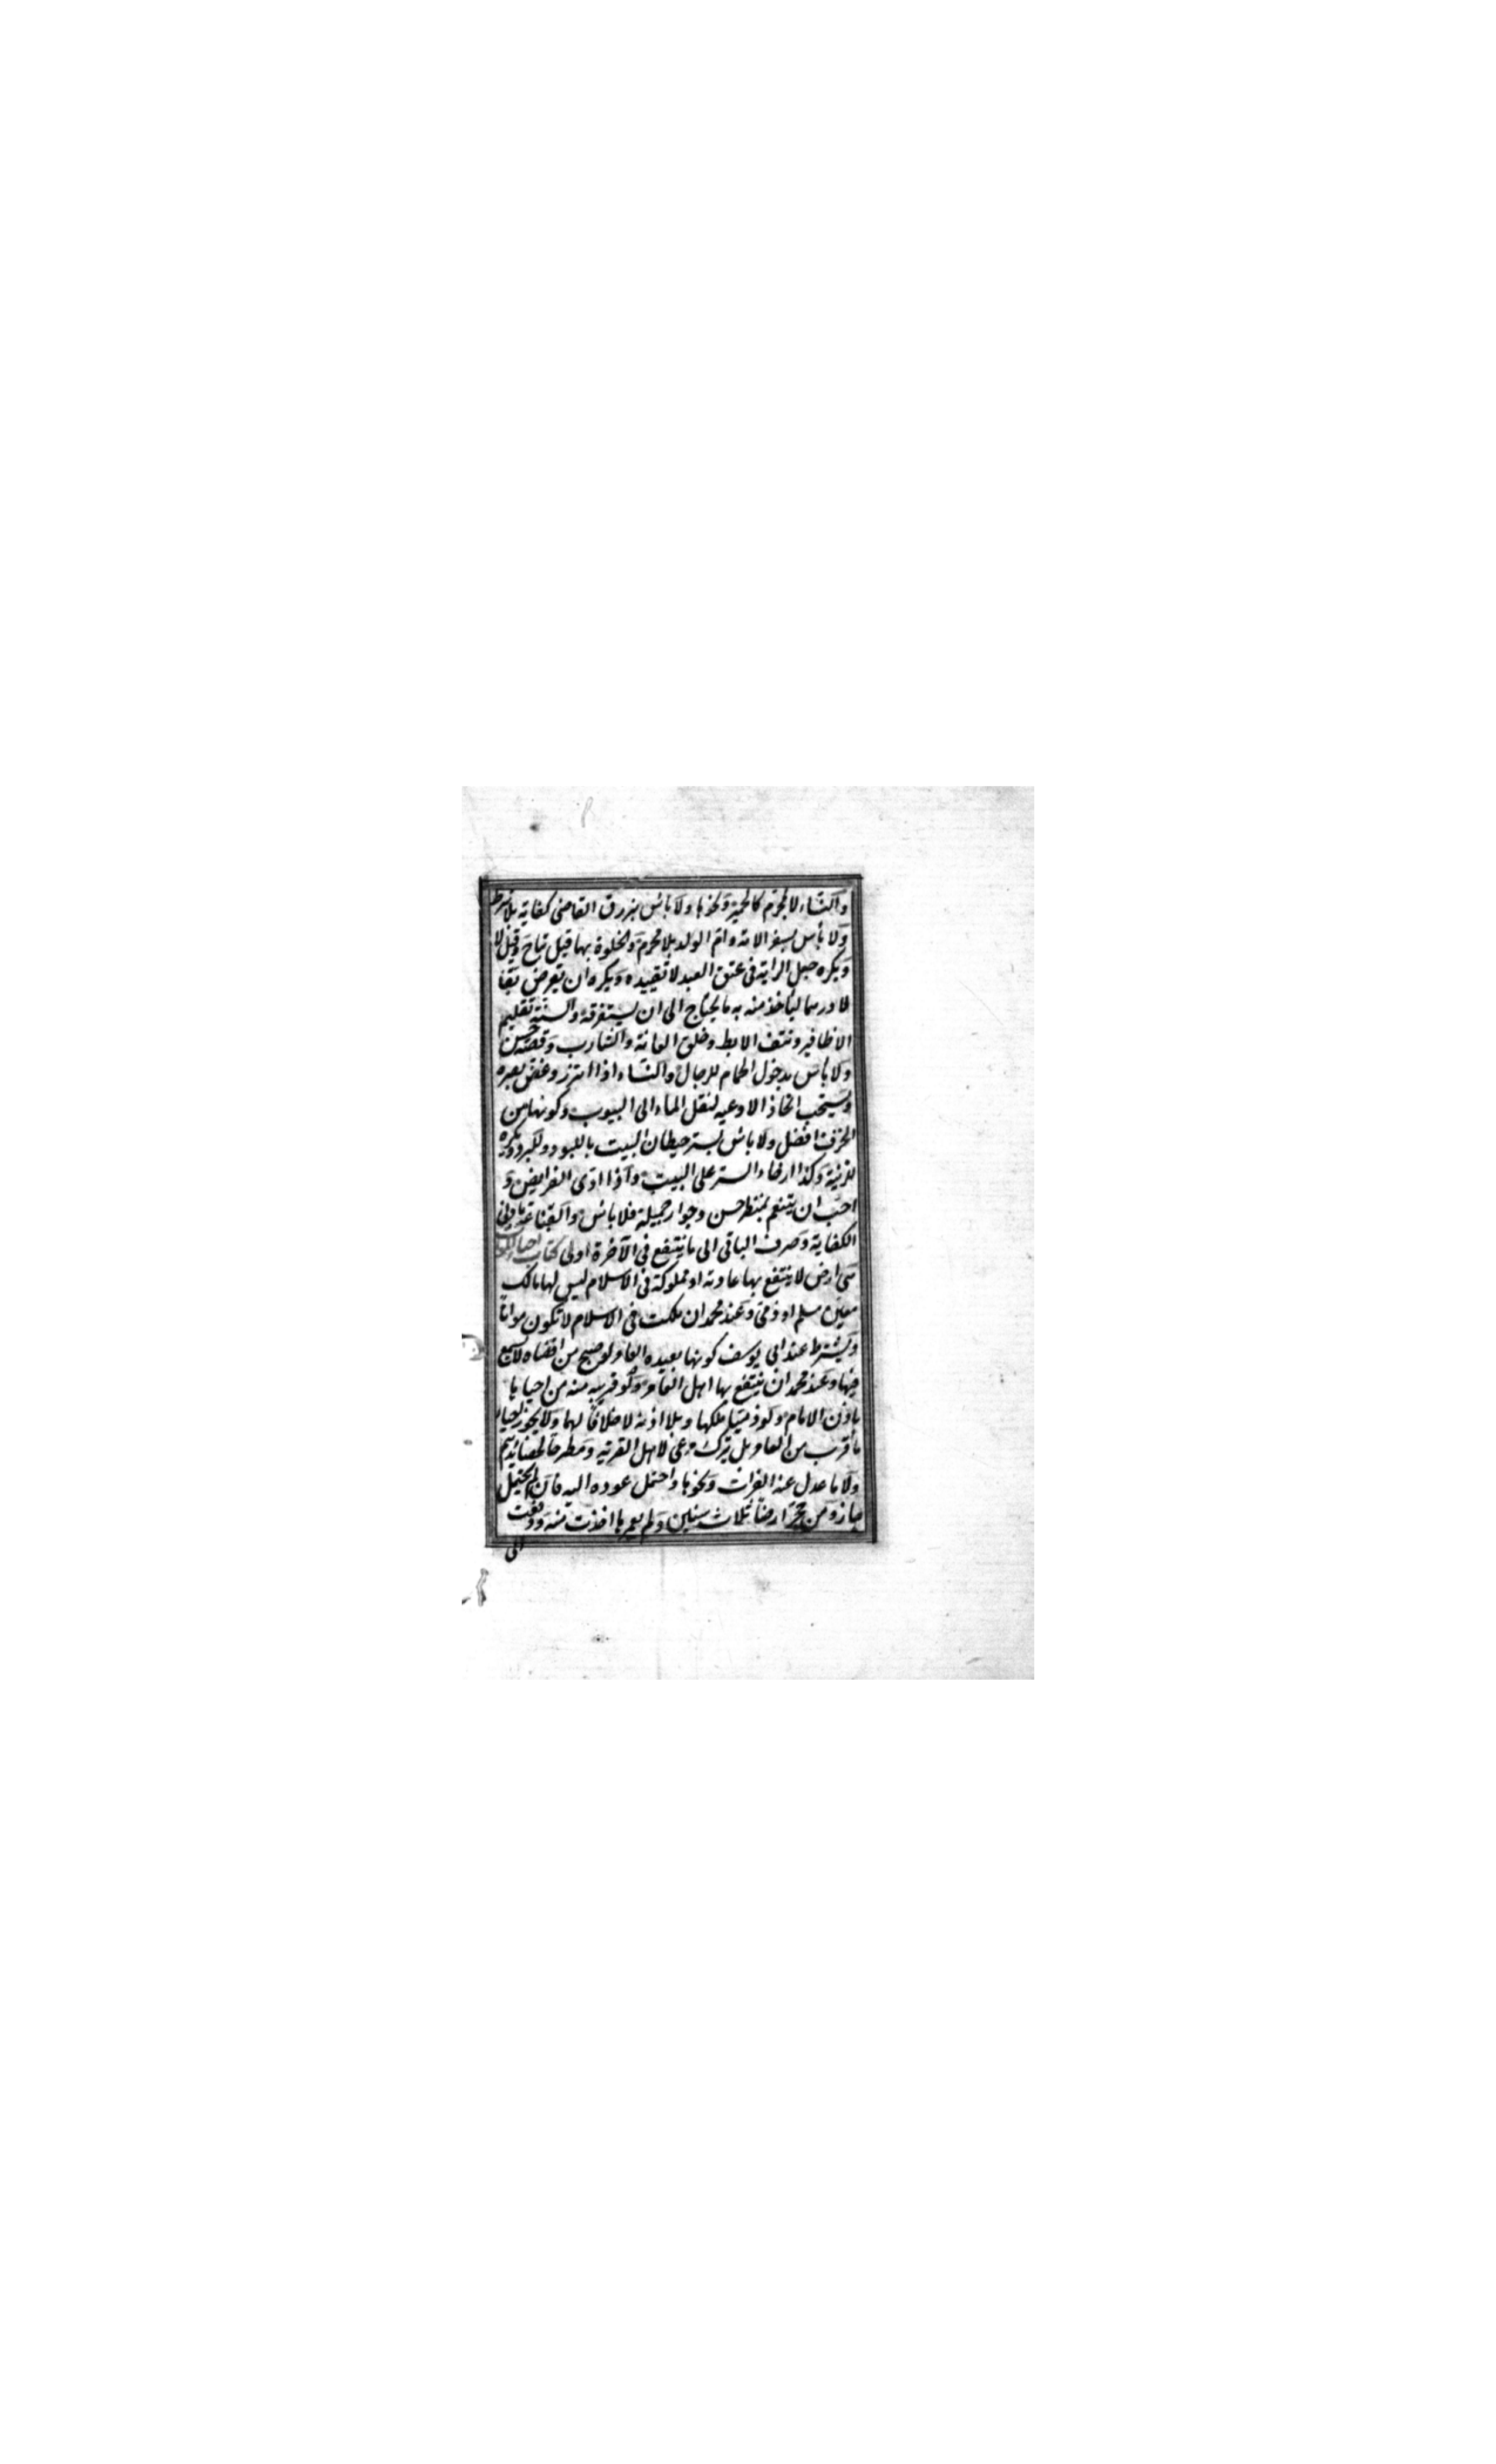 والنساء لا المحرم كالخمرة ونحوها ولا بأس برزق القاضى كفاية بلا شرط
ولا بأس بسفر الامة وام الولد بلا محرم والخلوة بها قيل تباح وقيل لا
ويكره جعل الراية فى عنق العبد لا تقييده ويكره ان يقرض بقا
لا درهما ليأخذ منه به ما يحتاج الى ان يستغرقه والسنة تقليم
الاظافير ونتف الابط وحلق العانة والشارب وقصه حسن
ولا بأس بدخول الحمام للرجال والنساء اذا اتزر وغض بصره
ويستحب اتخاذ الاوعيه لنقل الماء الى البيوت وكونها من
الخزف افضل ولا بأس بستر حيطان البيت باللبود وللبرد ويكره
للزينة وكذا ارخاء الستر على البيت واذا ادى الفرايض و
احب ان يتنعم بمنظر حسن وجوار جميلة فلا بأس والقناعة بادنى
الكفاية وصرف الباقى الى ما ينتفع فى الآخرة اولى كتاب احياء الموات
هى ارض لا ينتفع بها عادية او مملوكة فى الاسلام ليس لها مالك
معين مسلم او ذمى وعند محمد ان ملكت فى الاسلام لا تكون مواتا
ويشترط عند ابى يوسف كونها بعيده العامر لو صيح من اقصاه لا يسمع
فيها وعند محمد ان ينتفع بها اهل العامر ولو قريبه منه من احياها
باذن الامام ولو ذميا ملكها وبلا اذنه لا خلافا لهما ولا يجوز احياء
ما قرب من العامر بل يترك مرعى لاهل القرية ومطرحا لحصائدهم
ولا ما عدل عنه الفرات ونحوها واحتمل عوده اليه فان لم يحتمل
جاز ومن حجر ارضا ثلاث سنين ولم يعمرها اخذت منه ودفعت
الى